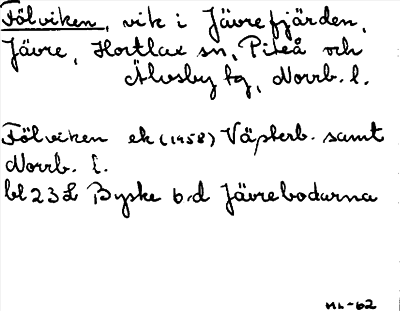 Fölviken, vik i Jävrefjärden,
Jävre, Hortlax sn, Piteå och
Älvsby tg, Norrb. l.
Fölviken ek (1958) Västerb. samt
Norrb. l.
bl 23 L Byske b.d Jävrebodarna
ML-62